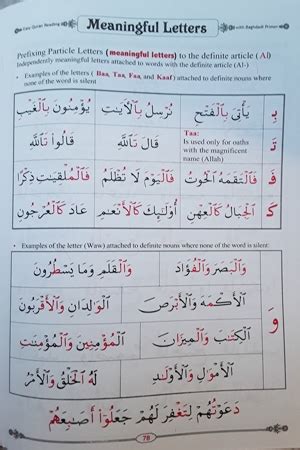 Easy Quran Reading
with Baghdadi Primer
Meaningful Letters
Prefixing Particle Letters (meaningful letters) to the definite article (Al)
Independently meaningful letters attached to words with the definite article (Al-)
• Examples of the letters ( Baa, Taa, Faa, and Kaaf) attached to definite nouns where
none of the word is silent
بِـ يَأْتِىَ بِالْفَتْحِ نُرْسِلُ بِالْآيَٰتِ يُؤْمِنُونَ بِالْغَيْبِ
تَـ قَالُوا تَاللَّهِ قَالَ تَاللَّهِ
Taa:
Is used only for oaths
with the magnificent
name (Allah)
فَـ فَالْتَقَمَهُ الْحُوتُ فَالْيَوْمَ لَا تُظْلَمُ فَالْمُلْقِيَٰتِ ذِكْرًا
كَـ الْجِبَالُ كَالْعِهْنِ أُولَٰئِكَ كَالْأَنْعَٰمِ عَادَ كَالْعُرْجُونِ
• Examples of the letter (Waw) attached to definite nouns where none of the word is silent:
وَالْبَصَرَ وَالْفُؤَادَ وَالْقَلَمِ وَمَا يَسْطُرُونَ
الْأَكْمَهَ وَالْأَبْرَصَ الْوَٰلِدَانِ وَالْأَقْرَبُونَ
وَ
الْكِتَٰبَ وَالْمِيزَانَ الْمُؤْمِنِينَ وَالْمُؤْمِنَٰتِ
الْأَمْوَٰلِ وَالْأَوْلَٰدِ لَهُ الْخَلْقُ وَالْأَمْرُ
دَعَوْتُهُمْ لِتَغْفِرَ لَهُمْ جَعَلُوٓا أَصَٰبِعَهُمْ
78